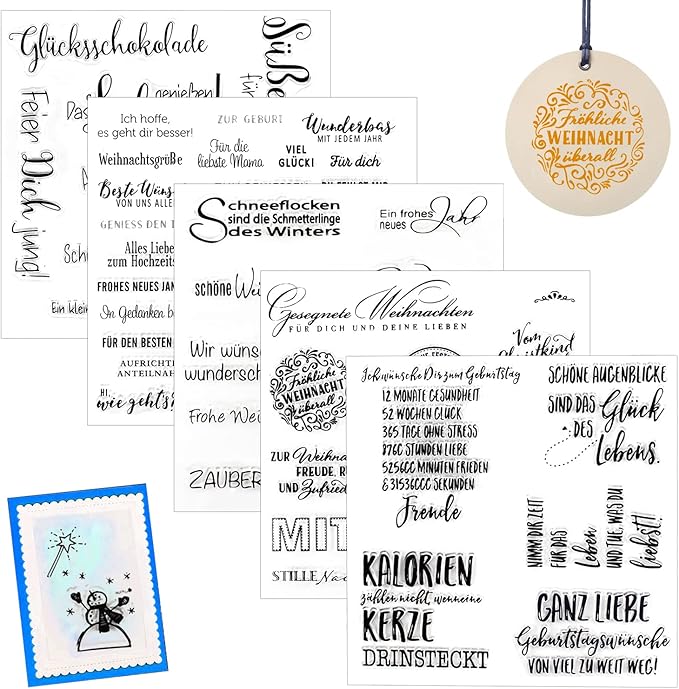 Glücksschokolade
Süße
für
Feier Dich jung!
Das
genießen!
Ein klein
Ich hoffe,
es geht dir besser!
Weihnachtsgrüße
Beste Wüns
VON UNS ALLE
GENIESS DEN
Alles Liebe
zum Hochzeits
FROHES NEUES JAH
In Gedanken b
FÜR DEN BESTEN
AUFRICHTI
ANTEILNAH
HI,
wie geht's?
ZUR GEBURT
Für die
liebste Mama
VIEL
GLÜCK!
Wunderbas
MIT JEDEM JAHR
Für dich
Schneeflocken
sind die Schmetterlinge
des Winters
Ein frohes
neues Jahr
schöne Wei
Wir wüns
wundersch
Frohe Wei
ZAUBER
Gesegnete Weihnachten
FÜR DICH UND DEINE LIEBEN
Vom
Christkind
Fröhliche
WEIHNACHT
überall
ZUR Weihna
FREUDE, R
UND Zufried
MIT
STILLE Nac
Ich wünsche Dir zum Geburtstag
12 MONATE GESUNDHEIT
52 WOCHEN GLÜCK
365 TAGE OHNE STRESS
8760 STUNDEN LIEBE
525600 MINUTEN FRIEDEN
& 31536000 SEKUNDEN
Freude
SCHÖNE AUGENBLICKE
SIND DAS Glück
DES
Lebens.
NIMM DIR ZEIT
FÜR DAS
Leben
UND TUE, WAS DU
liebst!
KALORIEN
zählen nicht, wenn eine
KERZE
DRINSTECKT
GANZ LIEBE
Geburtstagswünsche
VON VIEL ZU WEIT WEG!
Fröhliche
WEIHNACHT
überall